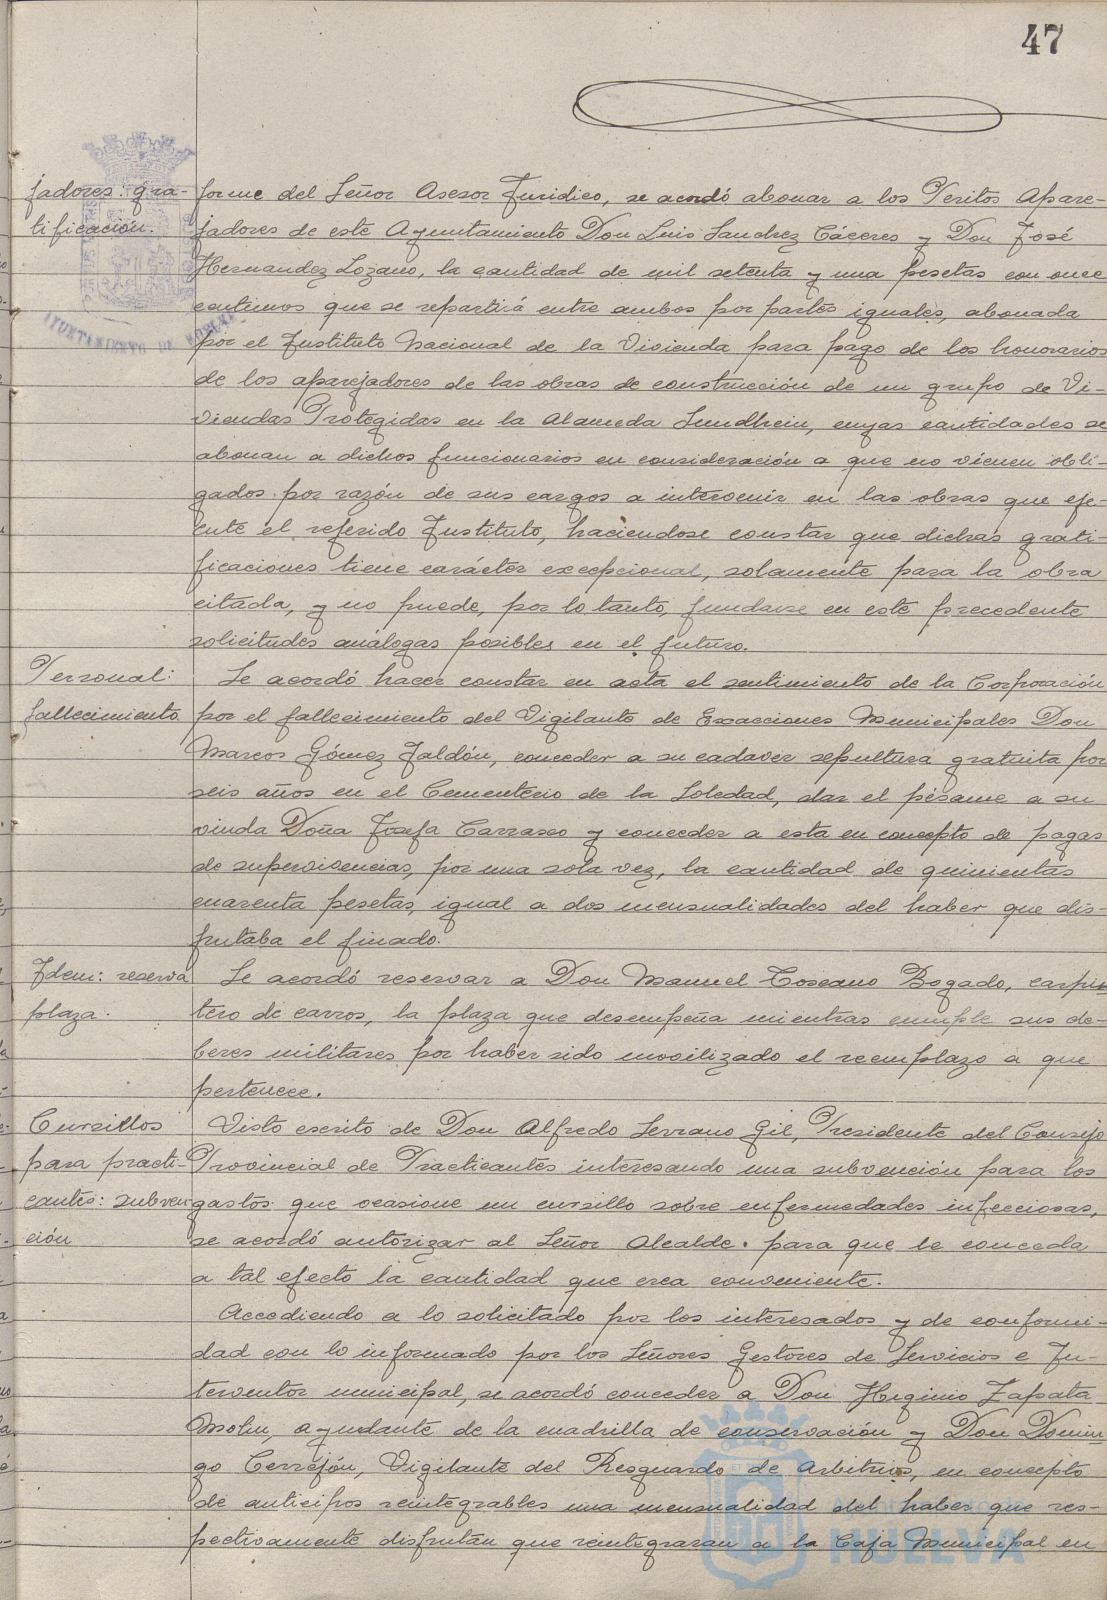 47
jadores: gra-
tificación.
forme del Señor Asesor Juridico, se acordó abonar a los Peritos Apare-
jadores de este Ayuntamiento Don Luis Sanchez Cáceres y Don José
Hernandez Lozano, la cantidad de mil setenta y una pesetas con once
centimos que se repartirá entre ambos por partes iguales, abonada
por el Instituto Nacional de la Vivienda para pago de los honorarios
de los aparejadores de las obras de construcción de un grupo de Vi-
viendas Protegidas en la Alameda Sundhein, cuyas cantidades se
abonan a dichos funcionarios en consideración a que no vienen obli-
gados por razón de sus cargos a intervenir en las obras que eje-
cute el referido Instituto, haciendose constar que dichas grati-
ficaciones tiene carácter excepcional, solamente para la obra
citada, y no puede, por lo tanto, fundarse en este precedente
solicitudes análogas posibles en el futuro.
Personal:
fallecimiento
Se acordó hacer constar en acta el sentimiento de la Corporación
por el fallecimiento del Vigilante de Exacciones Municipales Don
Marcos Gómez Faldón, conceder a su cadaver sepultura gratuita por
seis años en el Cementerio de la Soledad, dar el pésame a su
viuda Doña Josefa Carrasco y conceder a esta en concepto de pagas
de supervivencias, por una sola vez, la cantidad de quinientas
cuarenta pesetas, igual a dos mensualidades del haber que dis-
frutaba el finado.
Idem: reserva
plaza.
Se acordó reservar a Don Manuel Toscano Bogado, carpin
tero de carros, la plaza que desempeña mientras cumple sus de-
beres militares por haber sido movilizado el reemplazo a que
pertenece.
Cursillos
para practi-
cantes: subven
ción
Visto escrito de Don Alfredo Serrano Gil, Presidente del Consejo
Provincial de Practicantes interesando una subvención para los
gastos que ocasione un cursillo sobre enfermedades infecciosas,
se acordó autorizar al Señor Alcalde. para que le conceda
a tal efecto la cantidad que crea conveniente.
Accediendo a lo solicitado por los interesados y de conformi-
dad con lo informado por los Señores Gestores de Servicios e In-
terventor municipal, se acordó conceder a Don Higinio Zapata
ayudante de la cuadrilla de conservación y Don Domin
go Cerrejón, Vigilante del Resguardo de Arbitrios, en concepto
de anticipos reintegrables una mensualidad del haber que res-
pectivamente disfrutan que reintegraran a la Caja Municipal en
AYUNTAMIENTO DE HUELVA
Ayuntamiento de
HUELVA